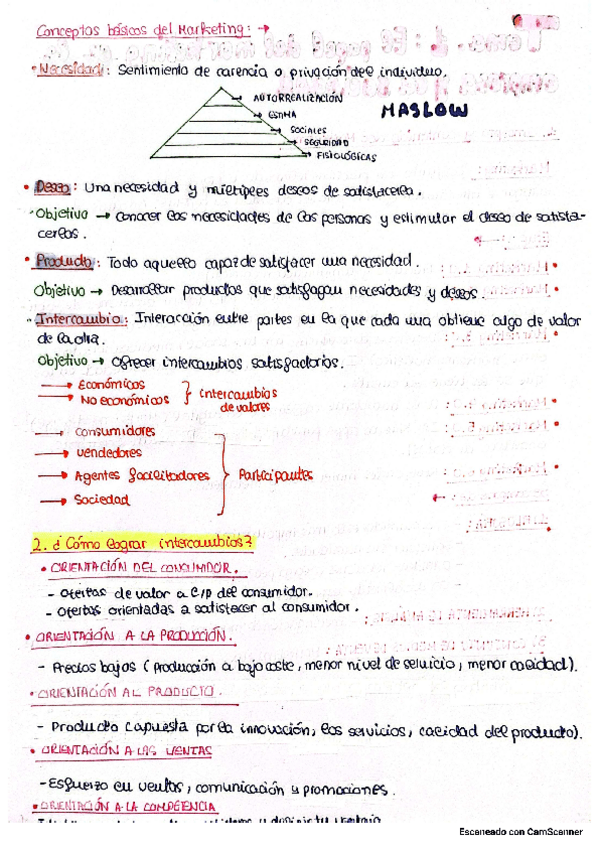 Conceptos básicos del Marketing: →
• Necesidad: Sentimiento de carencia o privación del individuo.
→ AUTORREALIZACIÓN
→ ESTIMA
→ SOCIALES
→ SEGURIDAD
→ FISIOLÓGICAS
MASLOW
• Deseo: Una necesidad y múltiples deseos de satisfacerla.
Objetivo → Conocer las necesidades de las personas y estimular el deseo de satisfa-
cerlos.
• Producto: Todo aquello capaz de satisfacer una necesidad.
Objetivo → Desarrollar productos que satisfagan necesidades y deseos.
• Intercambio: Interacción entre partes en la que cada una obtiene algo de valor
de la otra.
Objetivo → Ofrecer intercambios satisfactorios.
→ Económicos
→ No económicos
Intercambios
de valores
→ Consumidores
→ Vendedores
→ Agentes facilitadores
→ Sociedad
Participantes
2. ¿Cómo lograr intercambios?
• ORIENTACIÓN DEL CONSUMIDOR.
- Ofertas de valor a C/P del consumidor.
- Ofertas orientadas a satisfacer al consumidor.
• ORIENTACIÓN A LA PRODUCCIÓN.
- Precios bajos (Producción a bajo coste, menor nivel de servicio, menor calidad).
• ORIENTACIÓN AL PRODUCTO.
- Producto (apuesta por la innovación, los servicios, calidad del producto).
• ORIENTACIÓN A LAS VENTAS
- Esfuerzo en ventas, comunicación y promociones.
• ORIENTACIÓN A LA COMPETENCIA
Escaneado con CamScanner